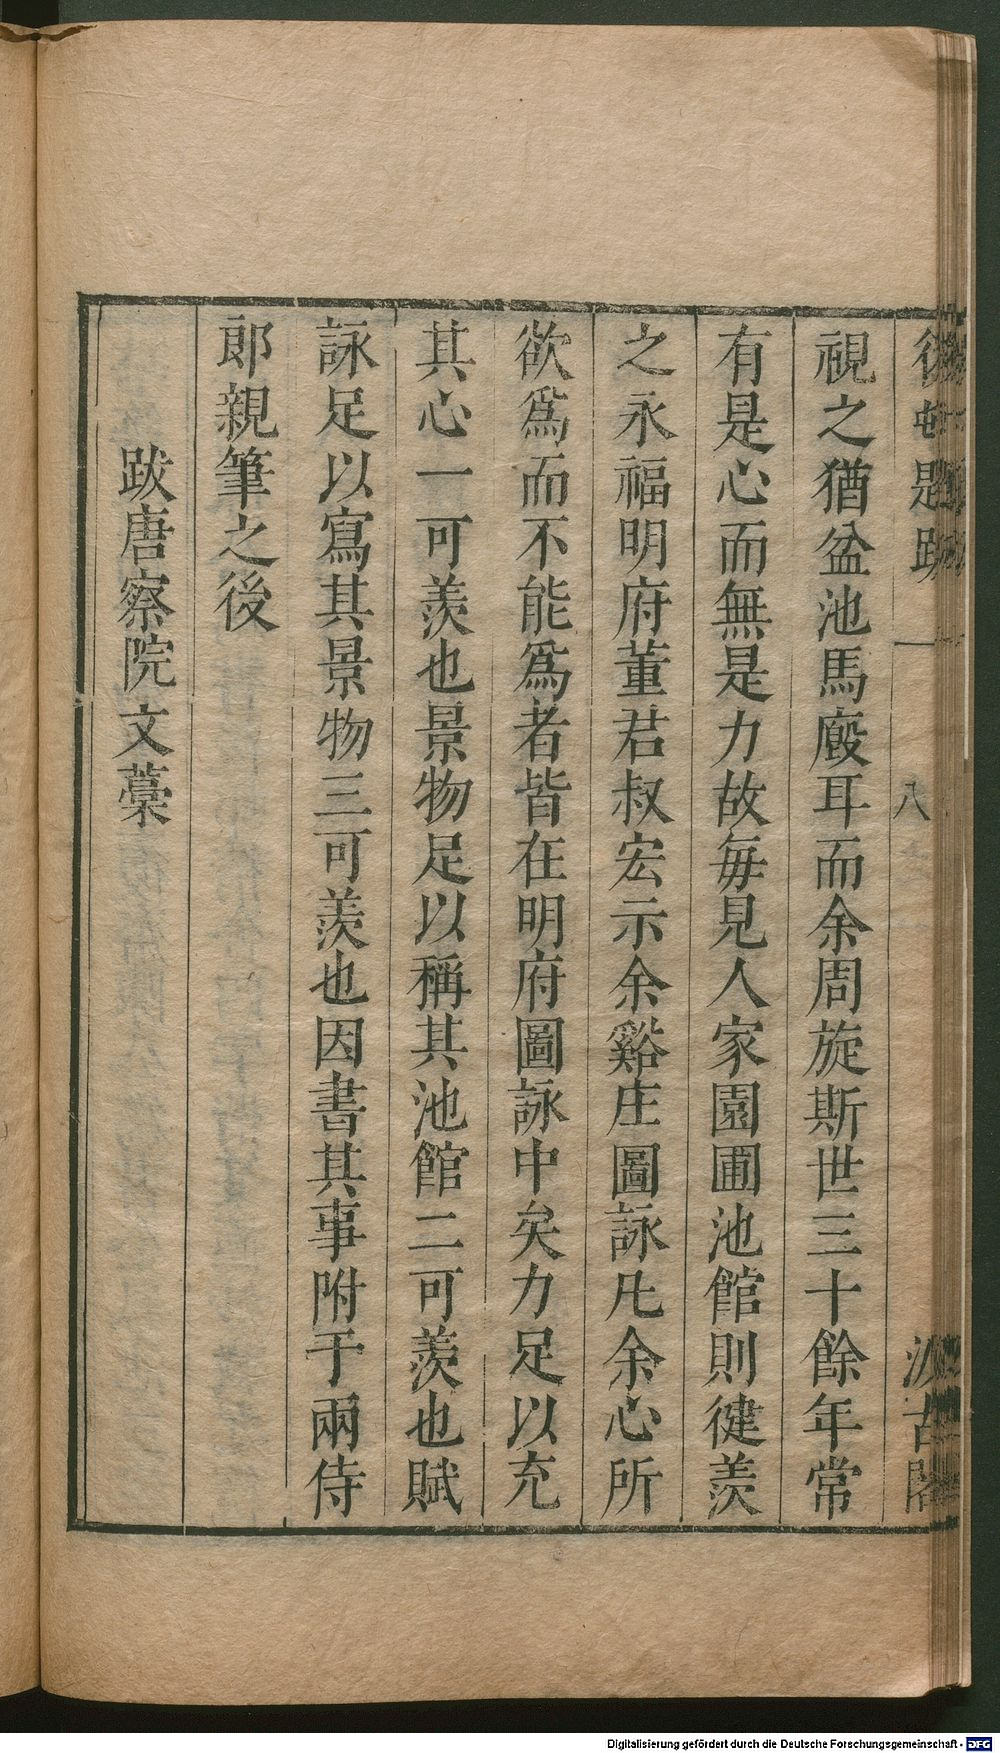 後村題跋 一 八 汲古閣
視之猶盆池馬廄耳而余周旋斯世三十餘年常
有是心而無是力故每見人家園圃池館則徤羨
之永福明府董君叔宏示余谿庄圖詠凡余心所
欲爲而不能爲者皆在明府圖詠中矣力足以充
其心一可羨也景物足以稱其池館二可羨也賦
詠足以寫其景物三可羨也因書其事附于兩侍
郎親筆之後
跋唐察院文藁
Digitalisierung gefördert durch die Deutsche Forschungsgemeinschaft - DFG